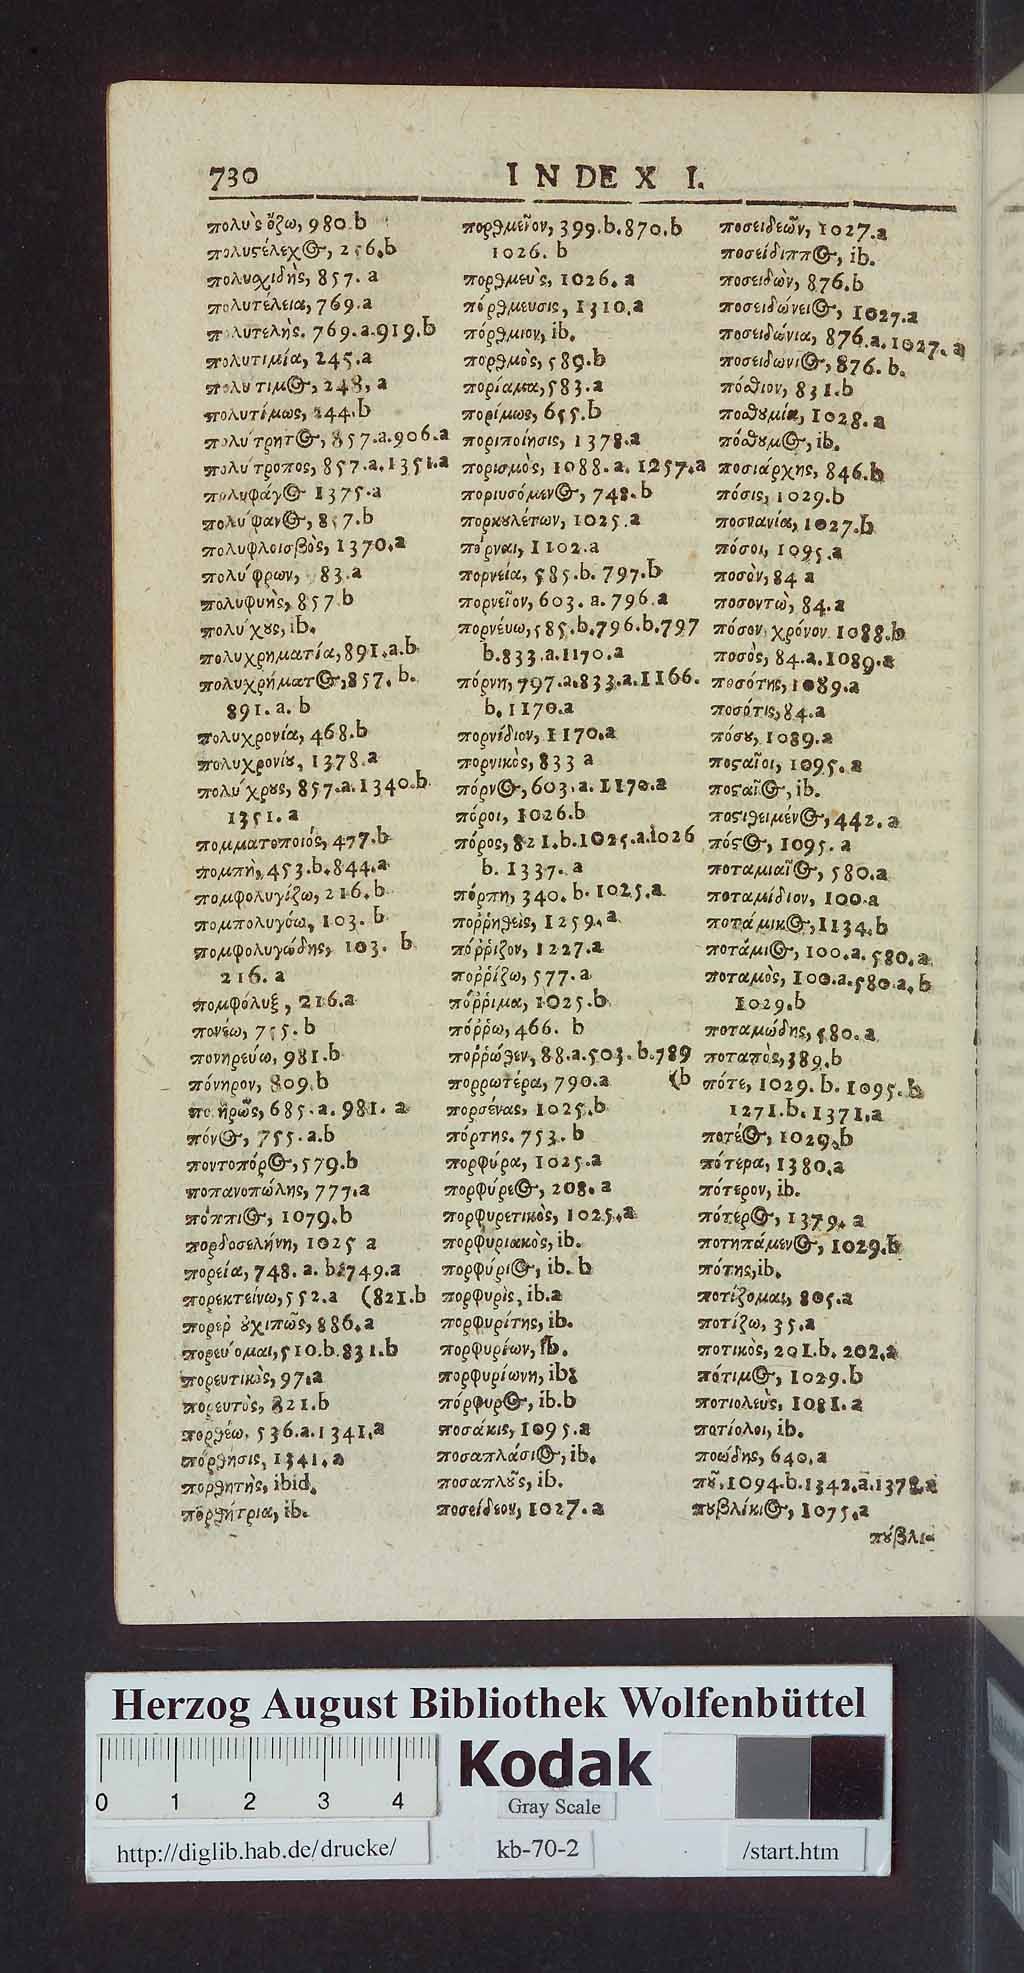 730
INDEX I.
πολυὸς ὄζω, 980.b
πολυϛέλεχ⊙, 256.b
πολυχιδὴς, 857. a
πολυτέλεια, 769.a
πολυτελὴς. 769.a.919.b
πολυτιμία, 245.a
πολύτιμ⊙, 248, a
πολυτίμως, 244.b
πολύτρητ⊙, 857.a.906.a
πολύτροπος, 857.a.1351.a
πολυφάγ⊙ 1375.a
πολύφαν⊙, 857.b
πολυφλοισβὸς, 1370.a
πολύφρων, 83.a
πολυφυὴς, 857.b
πολύχȣς, ib.
πολυχρηματία, 891.a.b
πολυχρήματ⊙, 857. b.
891. a. b
πολυχρονία, 468.b
πολυχρονίȣ, 1378.a
πολύχρȣς, 857.a.1340.b
1351. a
πομματοποιός, 477.b
πομπὴ, 453.b.844.a
πομφολυγίζω, 216.b
πομπολυγόω, 103. b
πομφολυγώδης, 103. b
216. a
πομφόλυξ, 216.a
πονέω, 755. b
πονηρεύω, 981.b
πόνηρον, 809.b
πονηρῶς, 685.a. 981. a
πόν⊙, 755.a.b
ποντοπόρ⊙, 579.b
ποπανοπώλης, 777.a
πόππι⊙, 1079.b
πορδοσελήνη, 1025 a
πορεία, 748. a. b. 749.a
πορεκτείνω, 552.a (821.b
πορερ ȣ̓χιπῶς, 886.a
πορεύομαι, 510.b.831.b
πορευτικὸς, 97.a
πορευτὸς, 821.b
πορθέω. 536.a.1341.a
πόρθησις, 1341.a
πορθητὴς, ibid.
πορθήτρια, ib.
πορθμεῖον, 399.b.870.b
1026. b
πορθμεὺς, 1026. a
πόρθμευσις, 1310.a
πόρθμιον, ib.
πορθμὸς, 589.b
πορίαμα, 583.a
πορίμως, 655.b
ποριποίησις, 1378.a
πορισμὸς, 1088.a. 1257.a
ποριυσόμεν⊙, 748.b
πορκȣλέτων, 1025.a
πόρναι, 1102.a
πορνεία, 585.b. 797.b
πορνεῖον, 603. a. 796.a
πορνέυω, 585.b.796.b.797
b.833.a.1170.a
πόρνη, 797.a.833.a.1166.
b. 1170.a
πορνίδιον, 1170.a
πορνικὸς, 833 a
πόρν⊙, 603.a. 1170.a
πόροι, 1026.b
πόρος, 821.b.1025.a.1026
b. 1337. a
πόρπη, 340. b. 1025.a
πορῥηθεὶς, 1259. a
πόῤῥιζον, 1227.a
ποῤῥίζω, 577.a
πόῤῥιμα, 1025.b
πόῤῥω, 466. b
ποῤῥώθεν, 88.a.503.b.789
πορρωτέρα, 790.a (b
πορσένας, 1025.b
πόρτης. 753. b
πορφύρα, 1025.a
πορφύρε⊙, 208. a
πορφυρετικὸς, 1025.a
πορφυριακὸς, ib.
πορφύρι⊙, ib. b
πορφυρὶς, ib.a
πορφυρίτης, ib.
πορφυρίων, ib.
πορφυρίωνη, ib.
πόρφυρ⊙, ib.b
ποσάκις, 1095.a
ποσαπλάσι⊙, ib.
ποσαπλȣ͂ς, ib.
ποσείδεον, 1027.a
ποσειδεῶν, 1027.a
ποσείδιππ⊙, ib.
ποσειδῶν, 876.b
ποσειδώνει⊙, 1027.a
ποσειδώνια, 876.a.1027.a
ποσειδωνι⊙, 876. b.
πόσθιον, 831.b
ποσθυμία, 1028.a
πόσθυμ⊙, ib.
ποσιάρχης, 846.b
πόσις, 1029.b
ποσνανία, 1027.b
πόσοι, 1095.a
ποσὸν, 84 a
ποσοντω, 84.a
πόσον χρόνον 1088.b
ποσὸς, 84.a.1089.a
ποσότης, 1089.a
ποσότις, 84.a
πόσȣ, 1089.a
ποϛαῖοι, 1095. a
ποϛαῖ⊙, ib.
ποϛιθειμέν⊙, 442. a
πόϛ⊙, 1095. a
ποταμιαῖ⊙, 580.a
ποταμίδιον, 100.a
ποτάμικ⊙, 1134.b
ποτάμι⊙, 100.a. 580.a
ποταμὸς, 100.a.580.a.b
1029.b
ποταμώδης, 580.a
ποταπὸς, 389.b
πότε, 1029. b. 1095. b
1271.b. 1371.a
ποτέ⊙, 1029.b
πότερα, 1380.a
πότερον, ib.
πότερ⊙, 1379. a
ποτηπάμεν⊙, 1029.b
πότης, ib.
ποτίζομαι, 805.a
ποτίζω, 35.a
ποτικὸς, 201.b. 202.a
πότιμ⊙, 1029.b
ποτιολεὺς, 1081. a
ποτίολοι, ib.
ποώδης, 640.a
πȣ͂, 1094.b.1342.a.1378.a
πȣβλίκι⊙, 1075.a
πȣ́βλι-
Herzog August Bibliothek Wolfenbüttel
0 1 2 3 4
Kodak
Gray Scale
http://diglib.hab.de/drucke/
kb-70-2
/start.htm